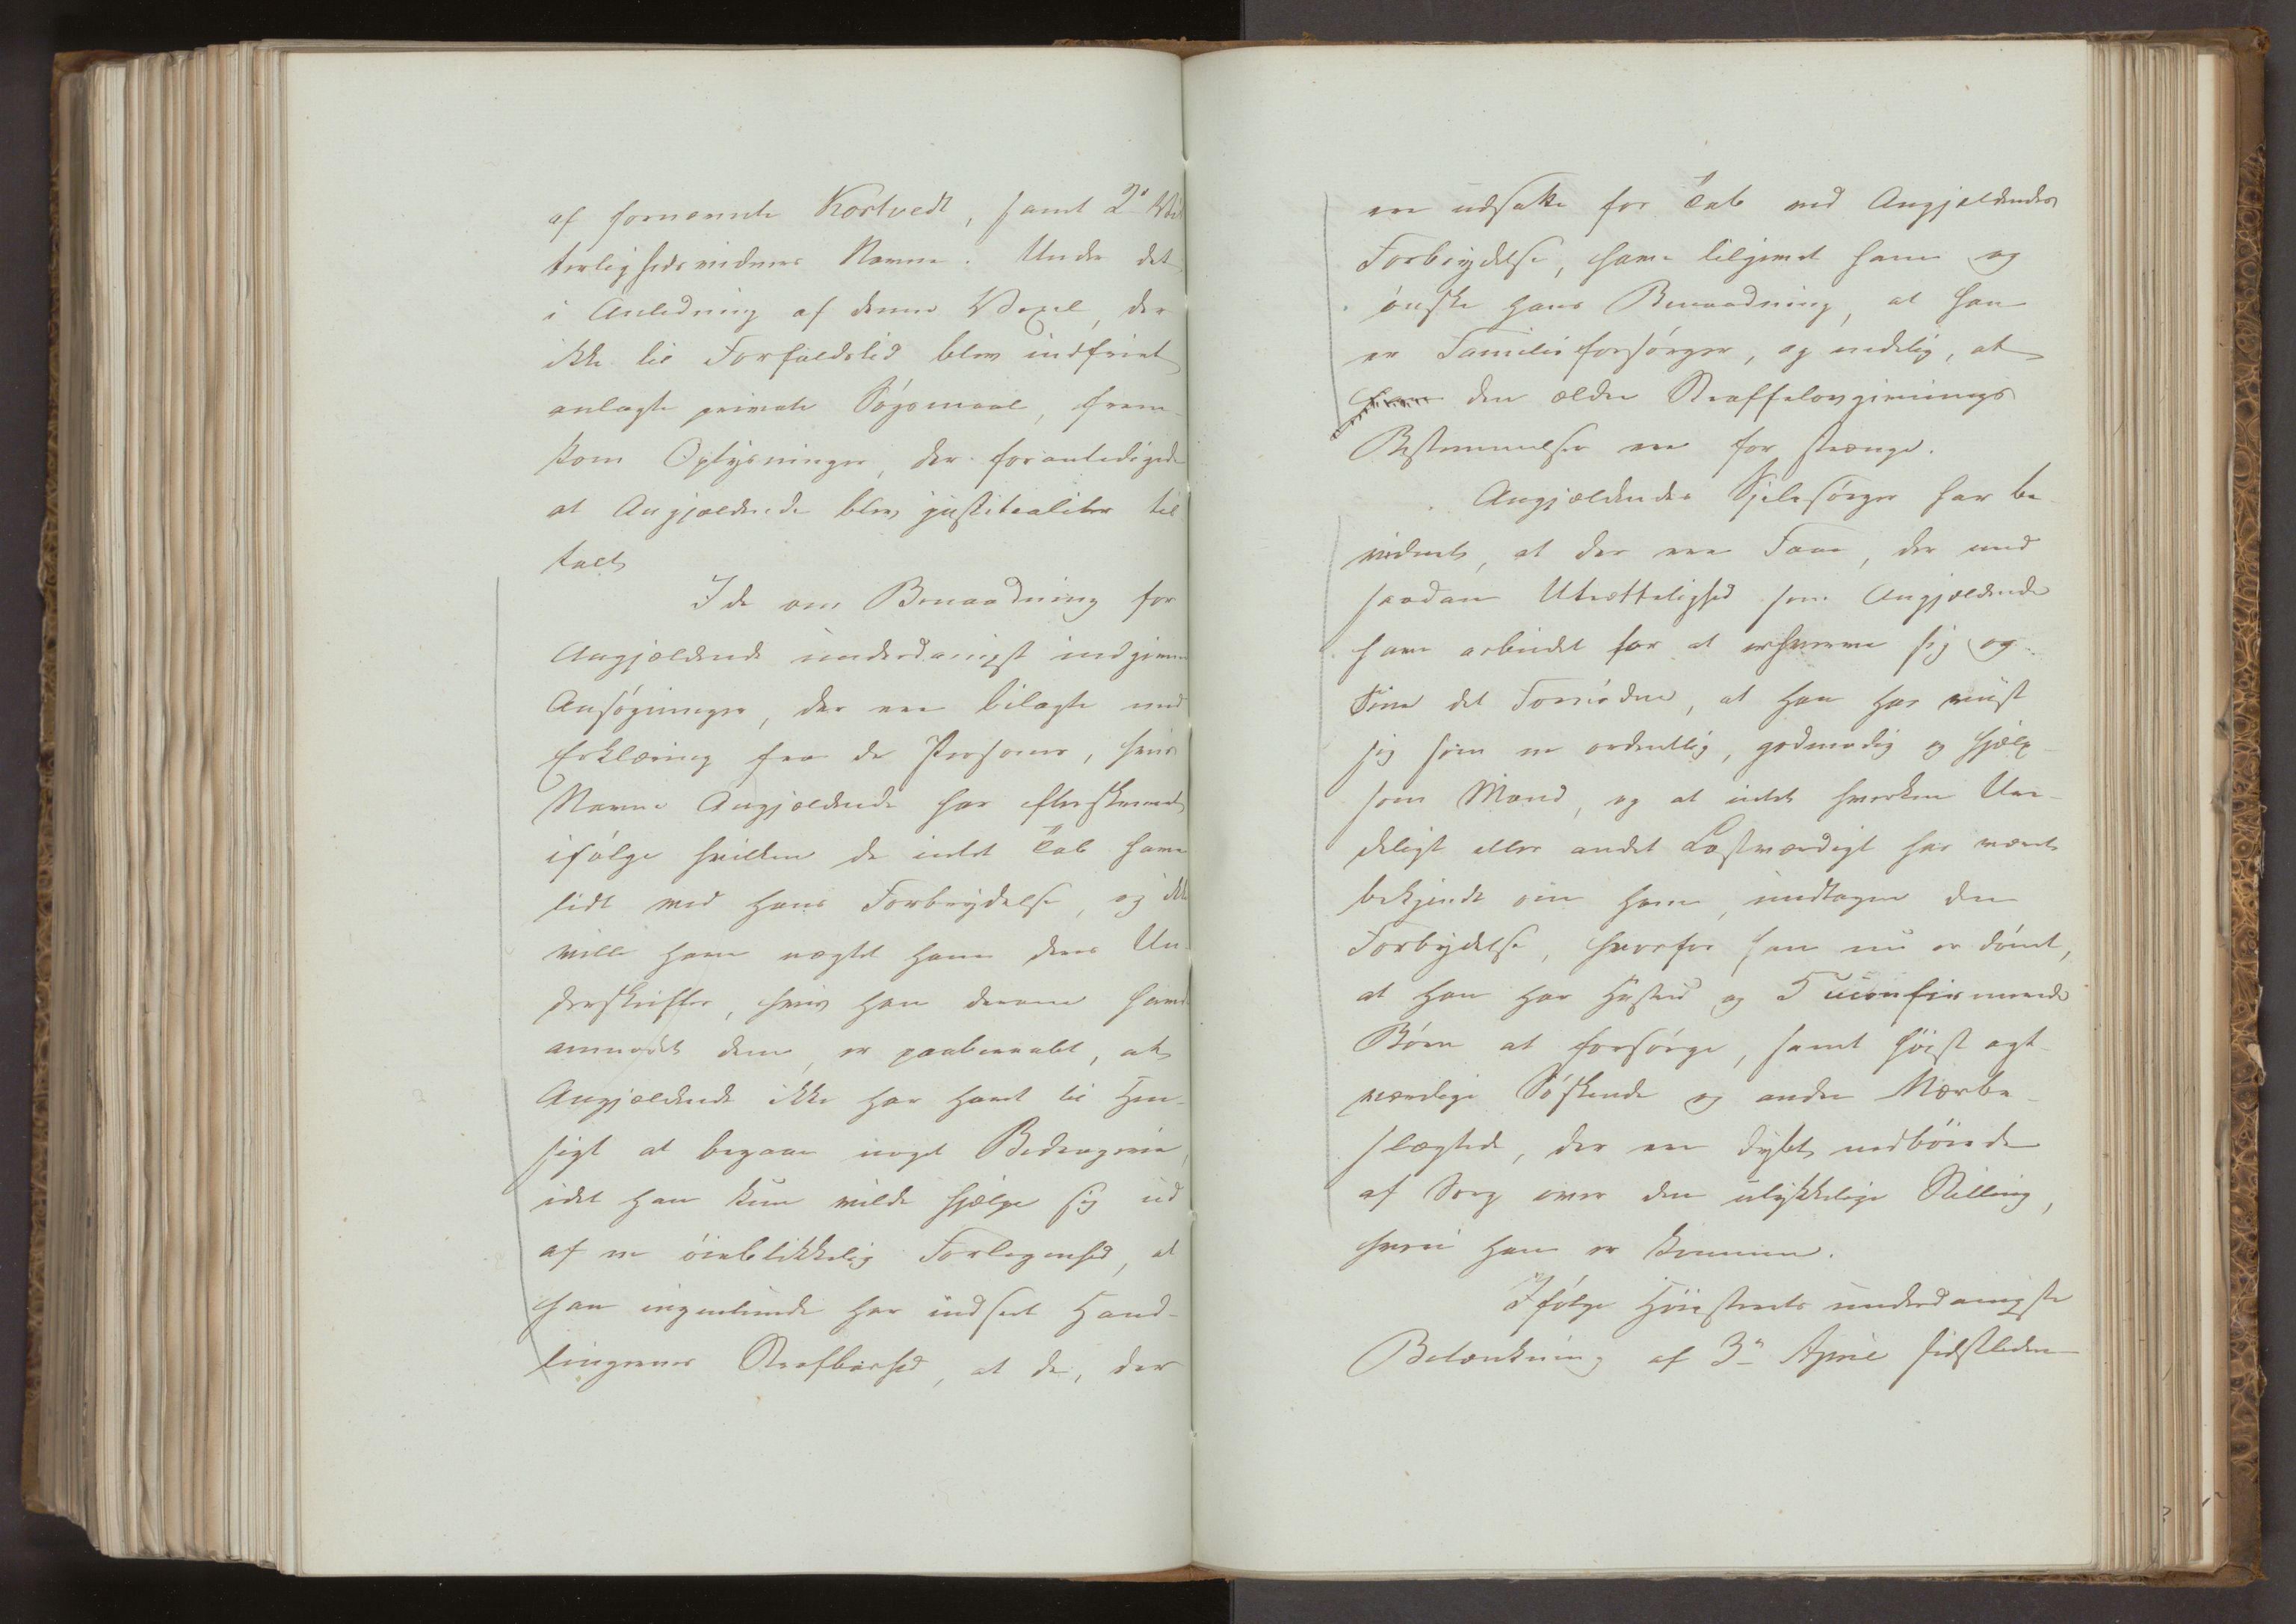 af fornævnte Kostvedt, samt 2de Vit
terlighedsvidners Navne. Under det
i Anledning af denne Vexel, der
ikke til Forfaldstid blev indfriet
anlagte private Søgsmaal, frem-
kom Oplysninger, der foranledigede
at Angjældende blev justitialiter til
talt
I de om Benaadning for
Angjældende underdanigst indgivne
Ansøgninger, der ere bilagte med
Erklæring fra de Personer, hvis
Navne Angjældende har efterskrevet
ifølge hvilken de intet Tab have
lidt ved hans Forbrydelse, og ikke
ville have nægtet ham deres Un-
derskrifter, hvis han derom havde
anmodet dem, er paaberaabt, at
Angjældende ikke har havt til Hen-
sigt at begaae noget Bedragerie,
idet han kun vilde hjælpe sig ud
af en øieblikkelig Forlegenhed, at
han ingenlunde har indseet Hand-
lingernes Strafbarhed, at de, der
ere udsatte for Tab ved Angjældendes
Forbrydelse, have tilgivet ham og
ønske hans Benaadning, at han
er Familieforsørger, og endelig, at
den ældre Straffelovgivnings
Bestemmelser ere for strænge.
Angjældendes Sjelesørger har be-
vidnet, at der ere Faae, der med
saadan Utrættelighed som Angjældende
have arbeidet for at erhverve sig og
Sine det Fornødne, at han har viist
sig som en ordentlig, godmodig og hjælp-
som Mand, og at intet hverken Uræ-
deligt eller andet Lastværdigt har været
bekjendt om ham, undtagen den
Forbrydelse, hvorfor han nu er dømt,
at han har Hustru og 5 uconfirmerede
Børn at forsørge, samt høist agt-
værdige Søskende og andre Nærbe-
slægtede, der ere dybt nedbøiede
af Sorg over den ulykkelige Stilling,
hvori han er kommen.
Ifølge Høiesterets underdanigste
Betænkning af 3die April sidstleden